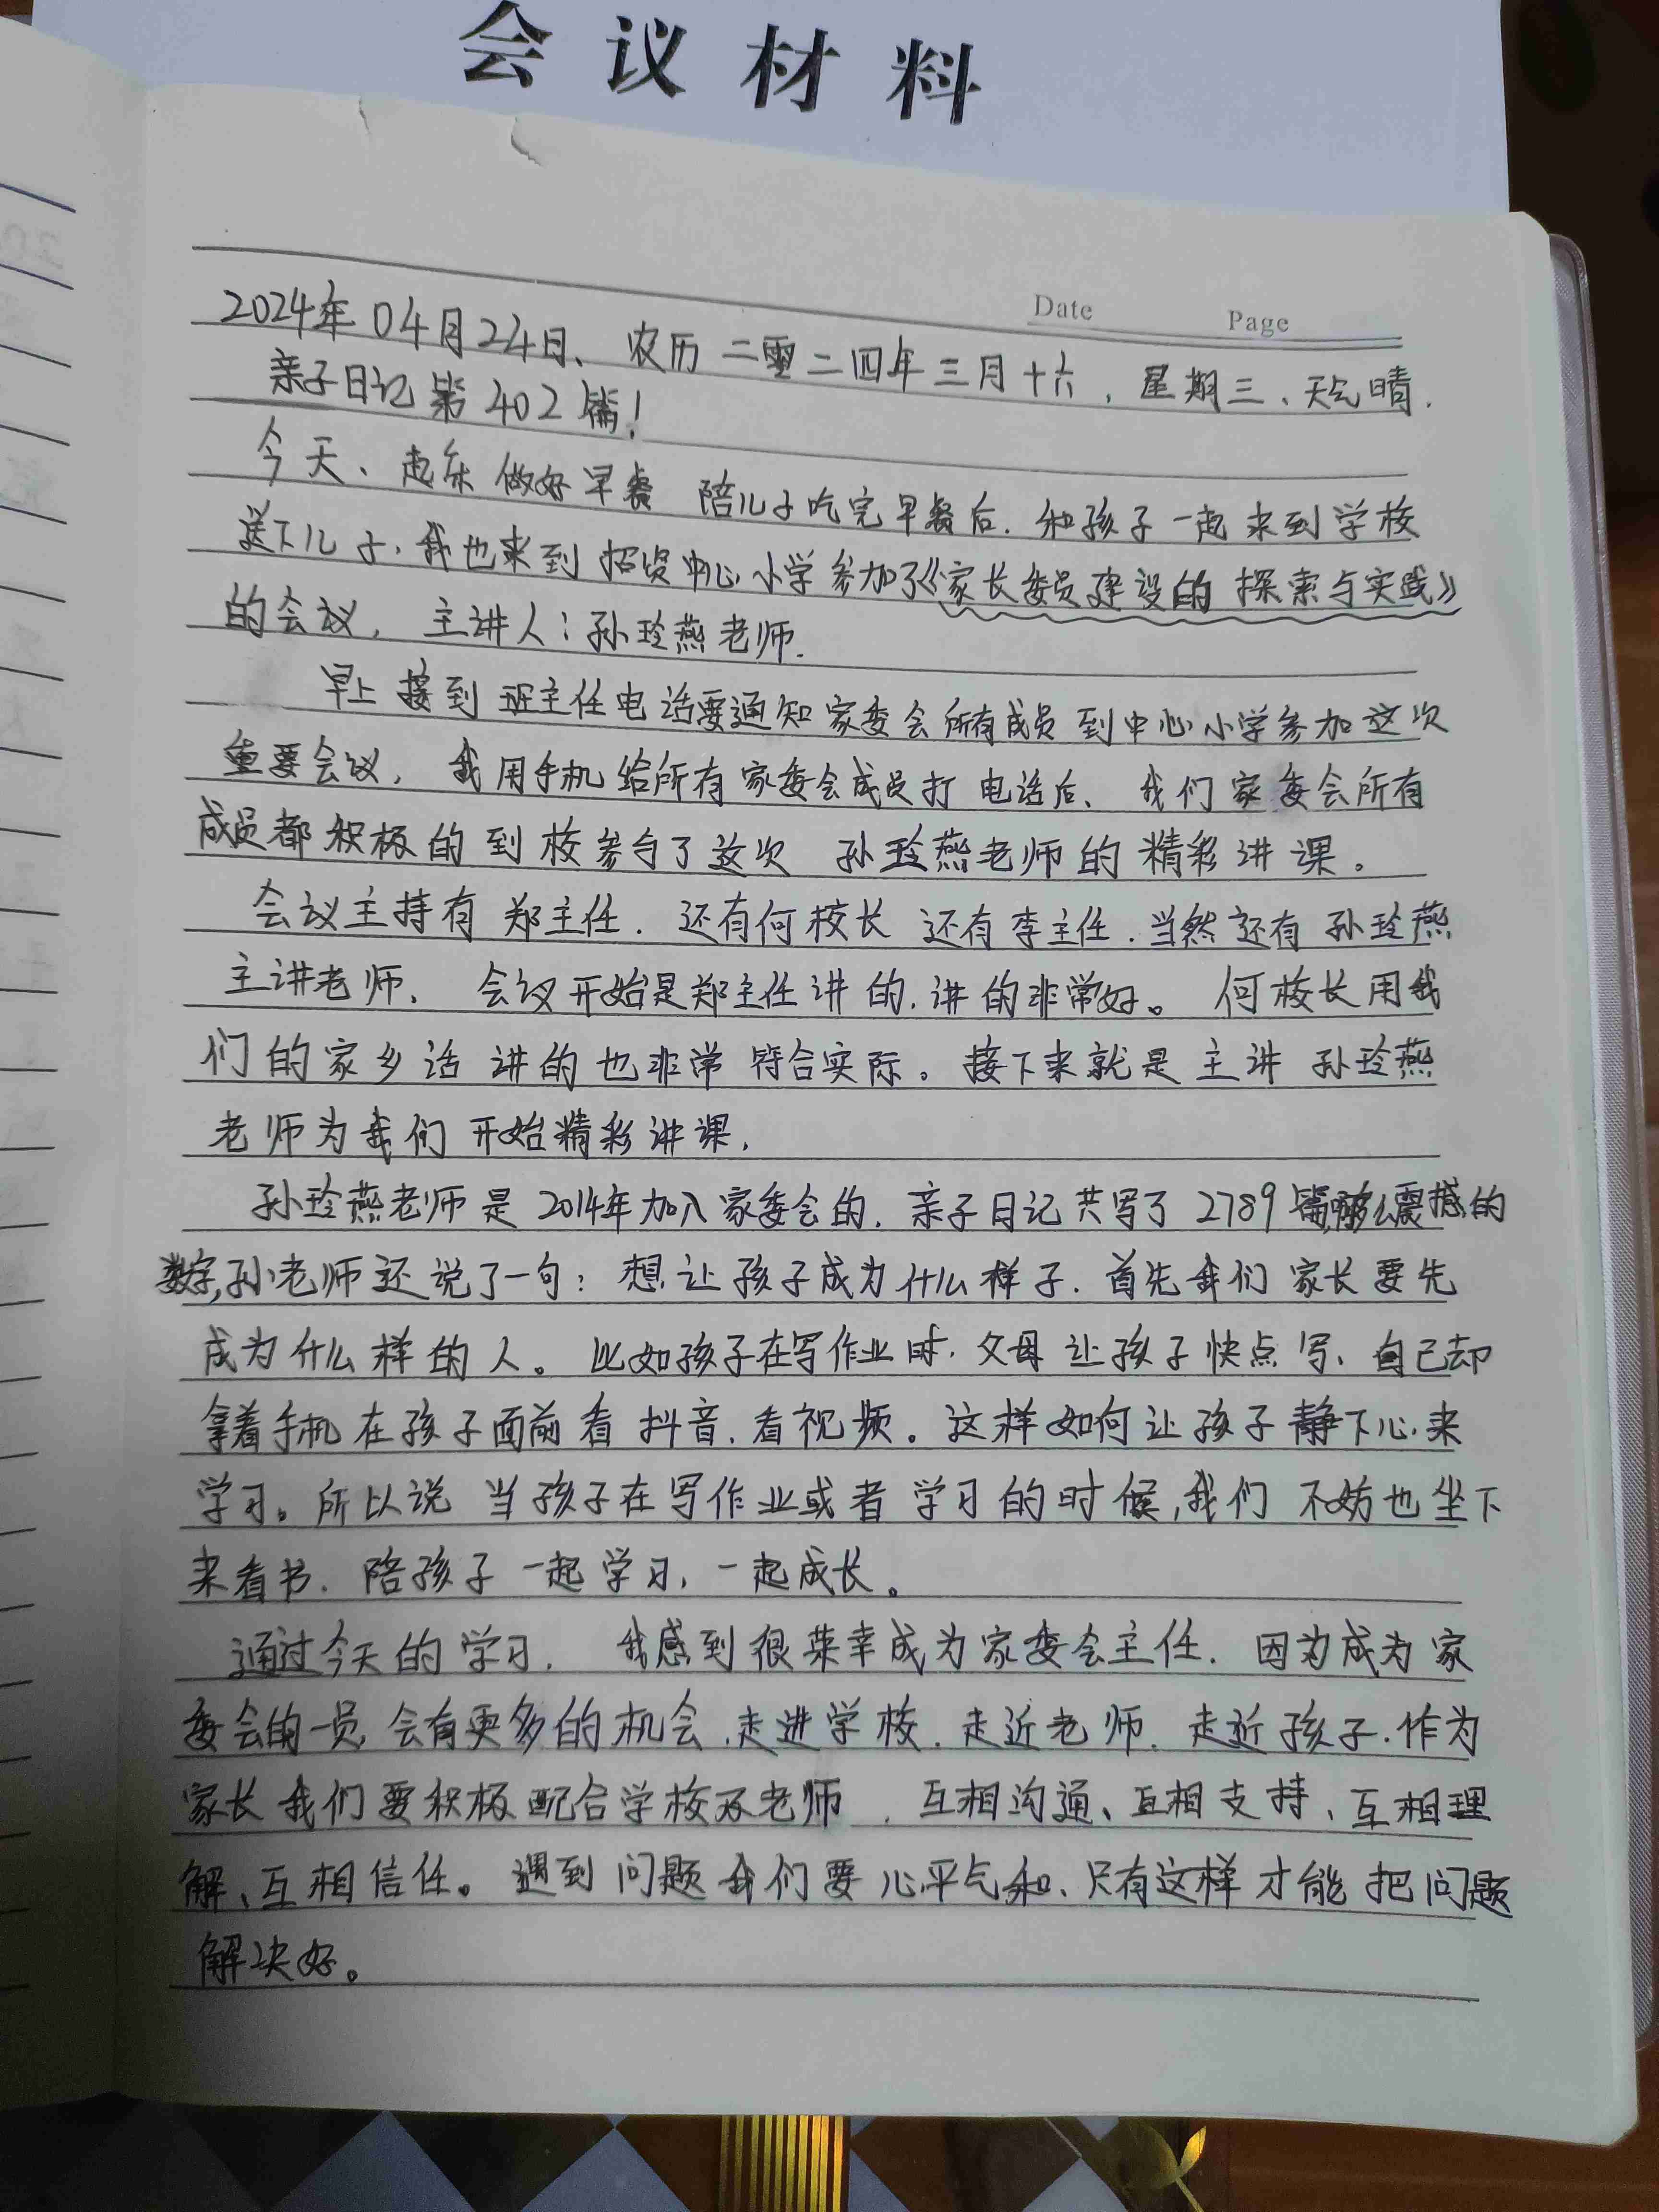 会议材料
Date Page
2024年04月24日、农历二零二四年三月十六,星期三、天气晴.
亲子日记第402篇!
今天、起床做好早餐 陪儿子吃完早餐后.和孩子一起来到学校
送下儿子,我也来到招贤中心小学参加了《家长委员建设的探索与实践》
的会议, 主讲人:孙玲燕老师.
早上接到班主任电话要通知家委会所有成员到中心小学参加这次
重要会议, 我用手机给所有家委会成员打电话后、我们家委会所有
成员都积极的到校参与了这次 孙玲燕老师的精彩讲课。
会议主持有郑主任.还有何校长 还有李主任.当然还有孙玲燕
主讲老师、 会议开始是郑主任讲的,讲的非常好。 何校长用我
们的家乡话讲的也非常符合实际。接下来就是主讲 孙玲燕
老师为我们开始精彩讲课,
孙玲燕老师是2014年加入家委会的,亲子日记共写了2789篇,震撼的
数字,孙老师还说了一句:想让孩子成为什么样子.首先我们家长要先
成为什么样的人。比如孩子在写作业时,父母让孩子快点写、自己却
拿着手机在孩子面前看抖音.看视频。这样如何让孩子静下心来
学习。所以说当孩子在写作业或者学习的时候,我们不妨也坐下
来看书.陪孩子一起学习,一起成长。
通过今天的学习, 我感到很荣幸成为家委会主任.因为成为家
委会的一员,会有更多的机会.走进学校.走近老师.走近孩子.作为
家长我们要积极配合学校及老师.互相沟通、互相支持、互相理
解、互相信任。遇到问题我们要心平气和、只有这样才能把问题
解决好。